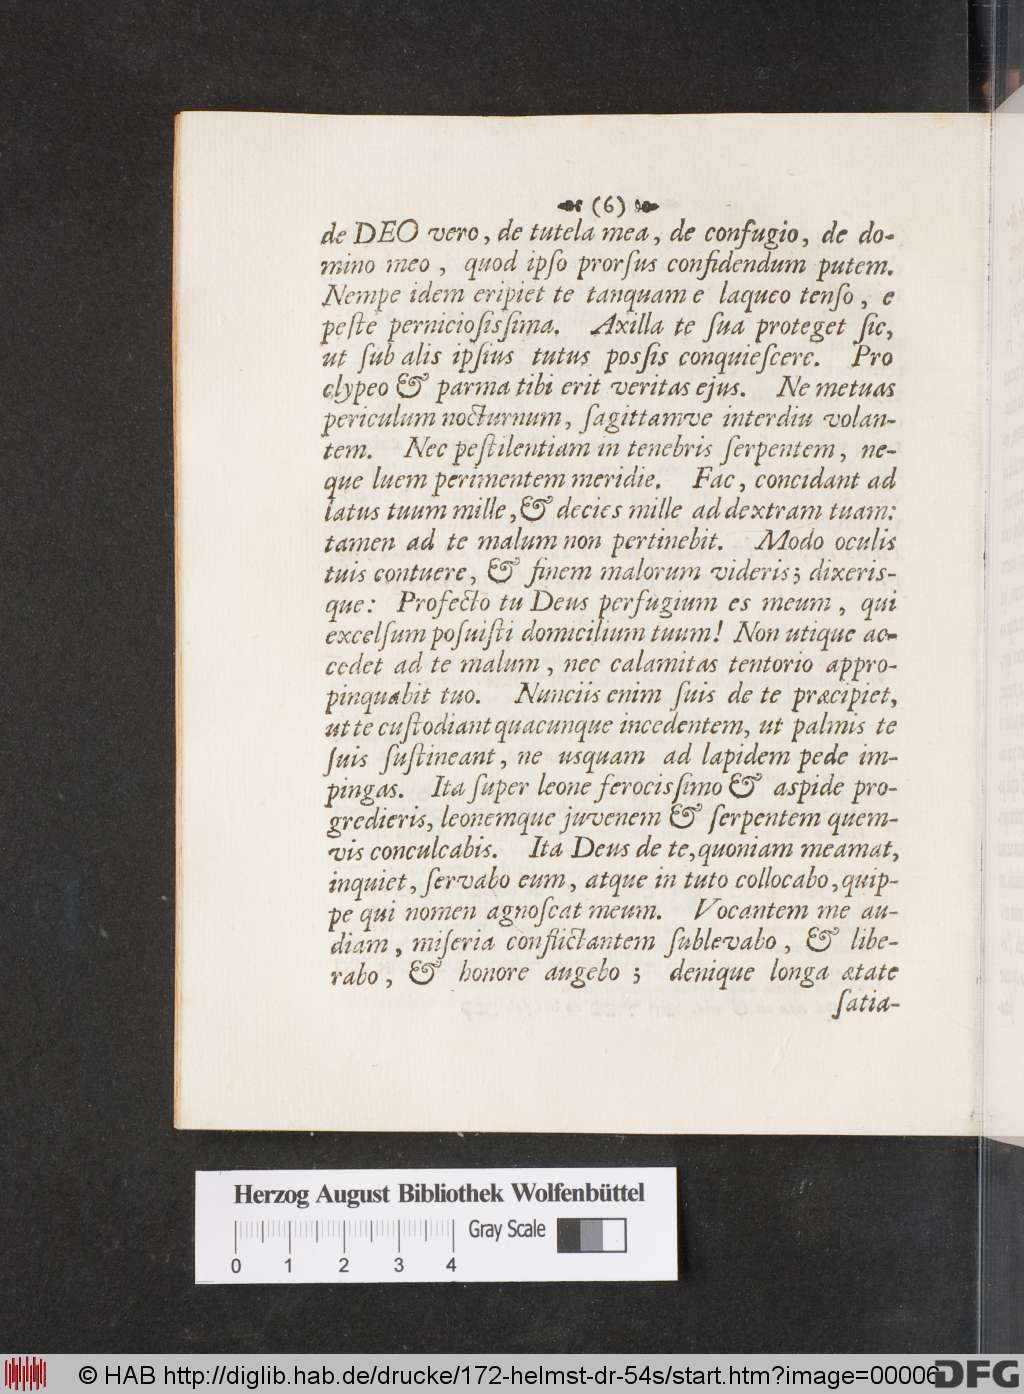 (6)
de DEO vero, de tutela mea, de confugio, de do-
mino meo, quod ipſo prorſus confidendum putem.
Nempe idem eripiet te tanquam e laqueo tenſo, e
peſte pernicioſisſima. Axilla te ſua proteget ſic,
ut ſub alis ipſius tutus posſis conquieſcere. Pro
clypeo & parma tibi erit veritas ejus. Ne metuas
periculum nocturnum, ſagittamve interdiu volan-
tem. Nec peſtilentiam in tenebris ſerpentem, ne-
que luem perimentem meridie. Fac, concidant ad
latus tuum mille, & decies mille ad dextram tuam:
tamen ad te malum non pertinebit. Modo oculis
tuis contuere, & finem malorum videris; dixeris-
que: Profecto tu Deus perfugium es meum, qui
excelſum poſuiſti domicilium tuum! Non utique ac-
cedet ad te malum, nec calamitas tentorio appro-
pinquabit tuo. Nunciis enim ſuis de te præcipiet,
ut te cuſtodiant quacunque incedentem, ut palmis te
ſuis ſuſtineant, ne usquam ad lapidem pede im-
pingas. Ita ſuper leone ferocisſimo & aspide pro-
gredieris, leonemque juvenem & ſerpentem quem-
vis conculcabis. Ita Deus de te, quoniam me amat,
inquiet, ſervabo eum, atque in tuto collocabo, quip-
pe qui nomen agnoſcat meum. Vocantem me au-
diam, miſeria conflictantem ſublevabo, & libe-
rabo, & honore augebo; denique longa ætate
ſatia-
Herzog August Bibliothek Wolfenbüttel
Gray Scale
0 1 2 3 4
© HAB http://diglib.hab.de/drucke/172-helmst-dr-54s/start.htm?image=00006
DFG